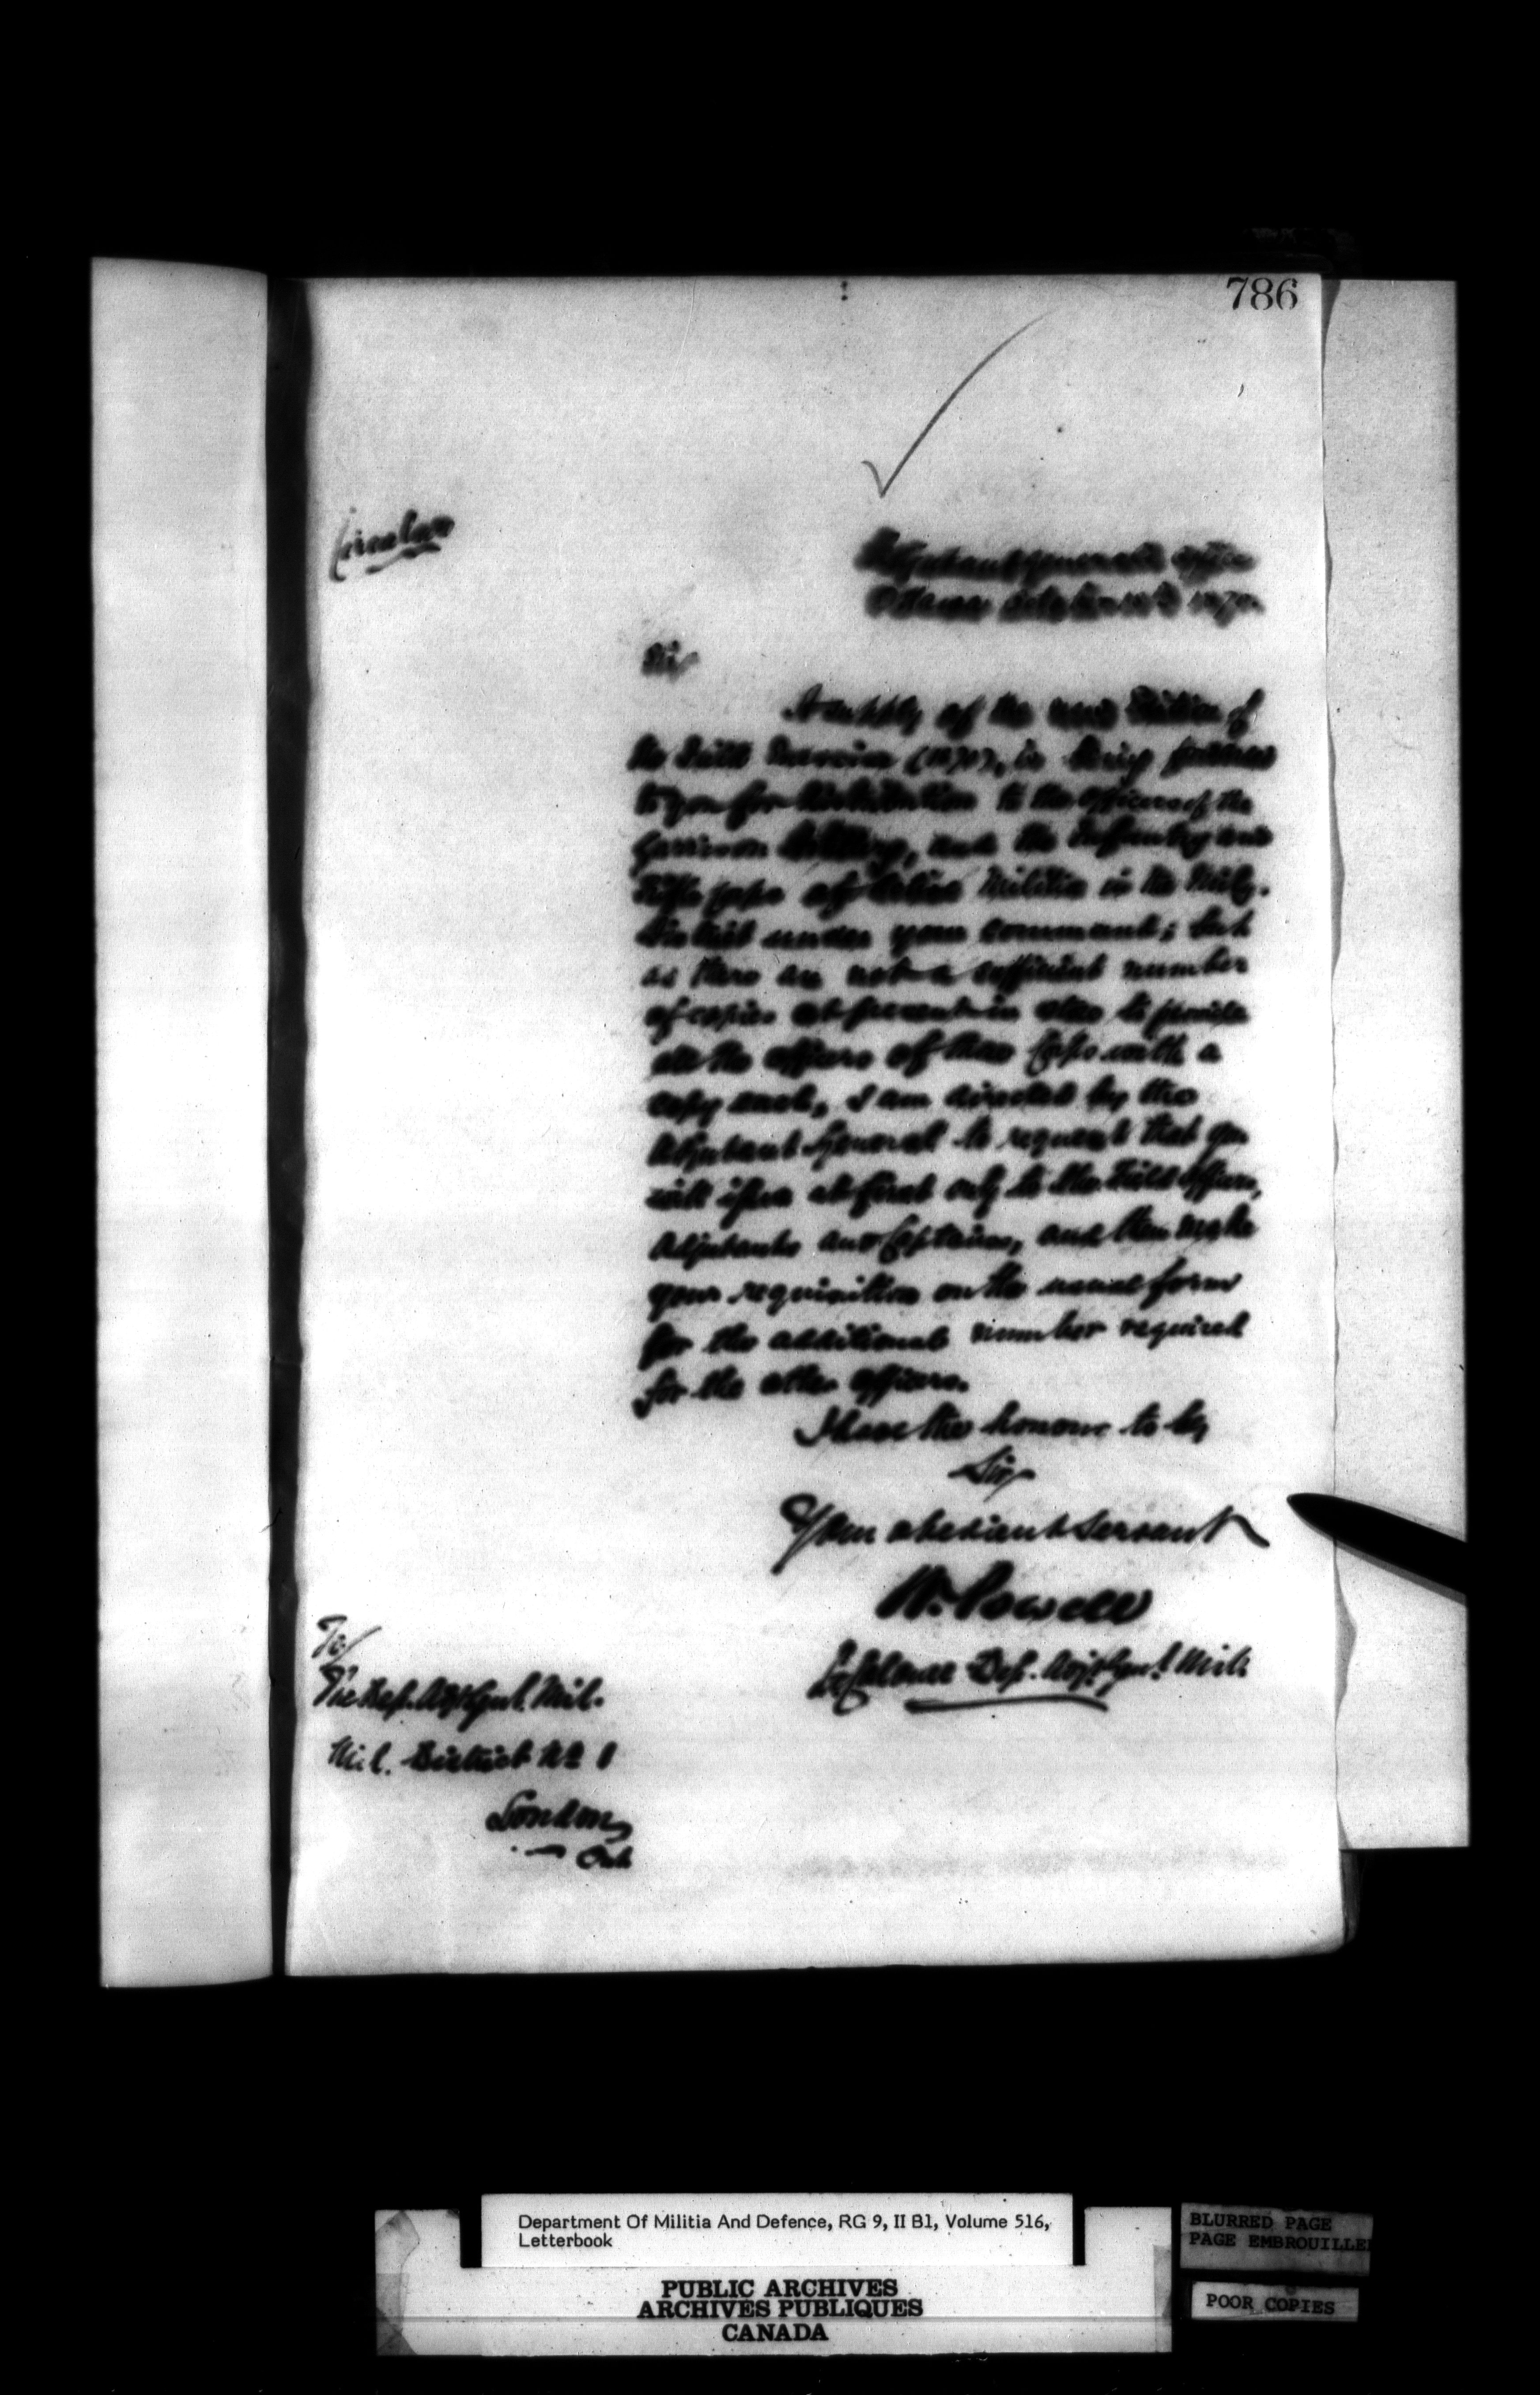 786
Circular
Adjutant General's Office
Ottawa October 1870
Sir
A supply of the new Edition of
the Drill Exercise (1870), is being
to you for distribution to the Officers of the
Garrison Artillery, and the Infantry and
Rifle Corps of Active Militia in the Mily.
District under your command; but
as there are not a sufficient number
of copies at present in store to provide
all the officers of these Corps with a
copy each, I am directed by the
Adjutant General to request that you
will issue at first only to the Field Officers,
Adjutants and Captains, and then make
your requisition on the usual form
for the additional number required
for the other officers.
I have the honour to be,
Sir,
Your obedient Servant
W. Powell
Lt. Colonel Dep. Adjt. Genl. Mil.
To/
The Dep. Adjt Genl. Mil.
Mil. District No 1
London
Ont
Department Of Militia And Defence, RG 9, II B1, Volume 516,
Letterbook
PUBLIC ARCHIVES
ARCHIVES PUBLIQUES
CANADA
BLURRED PAGE
PAGE EMBROUILLEE
POOR COPIES